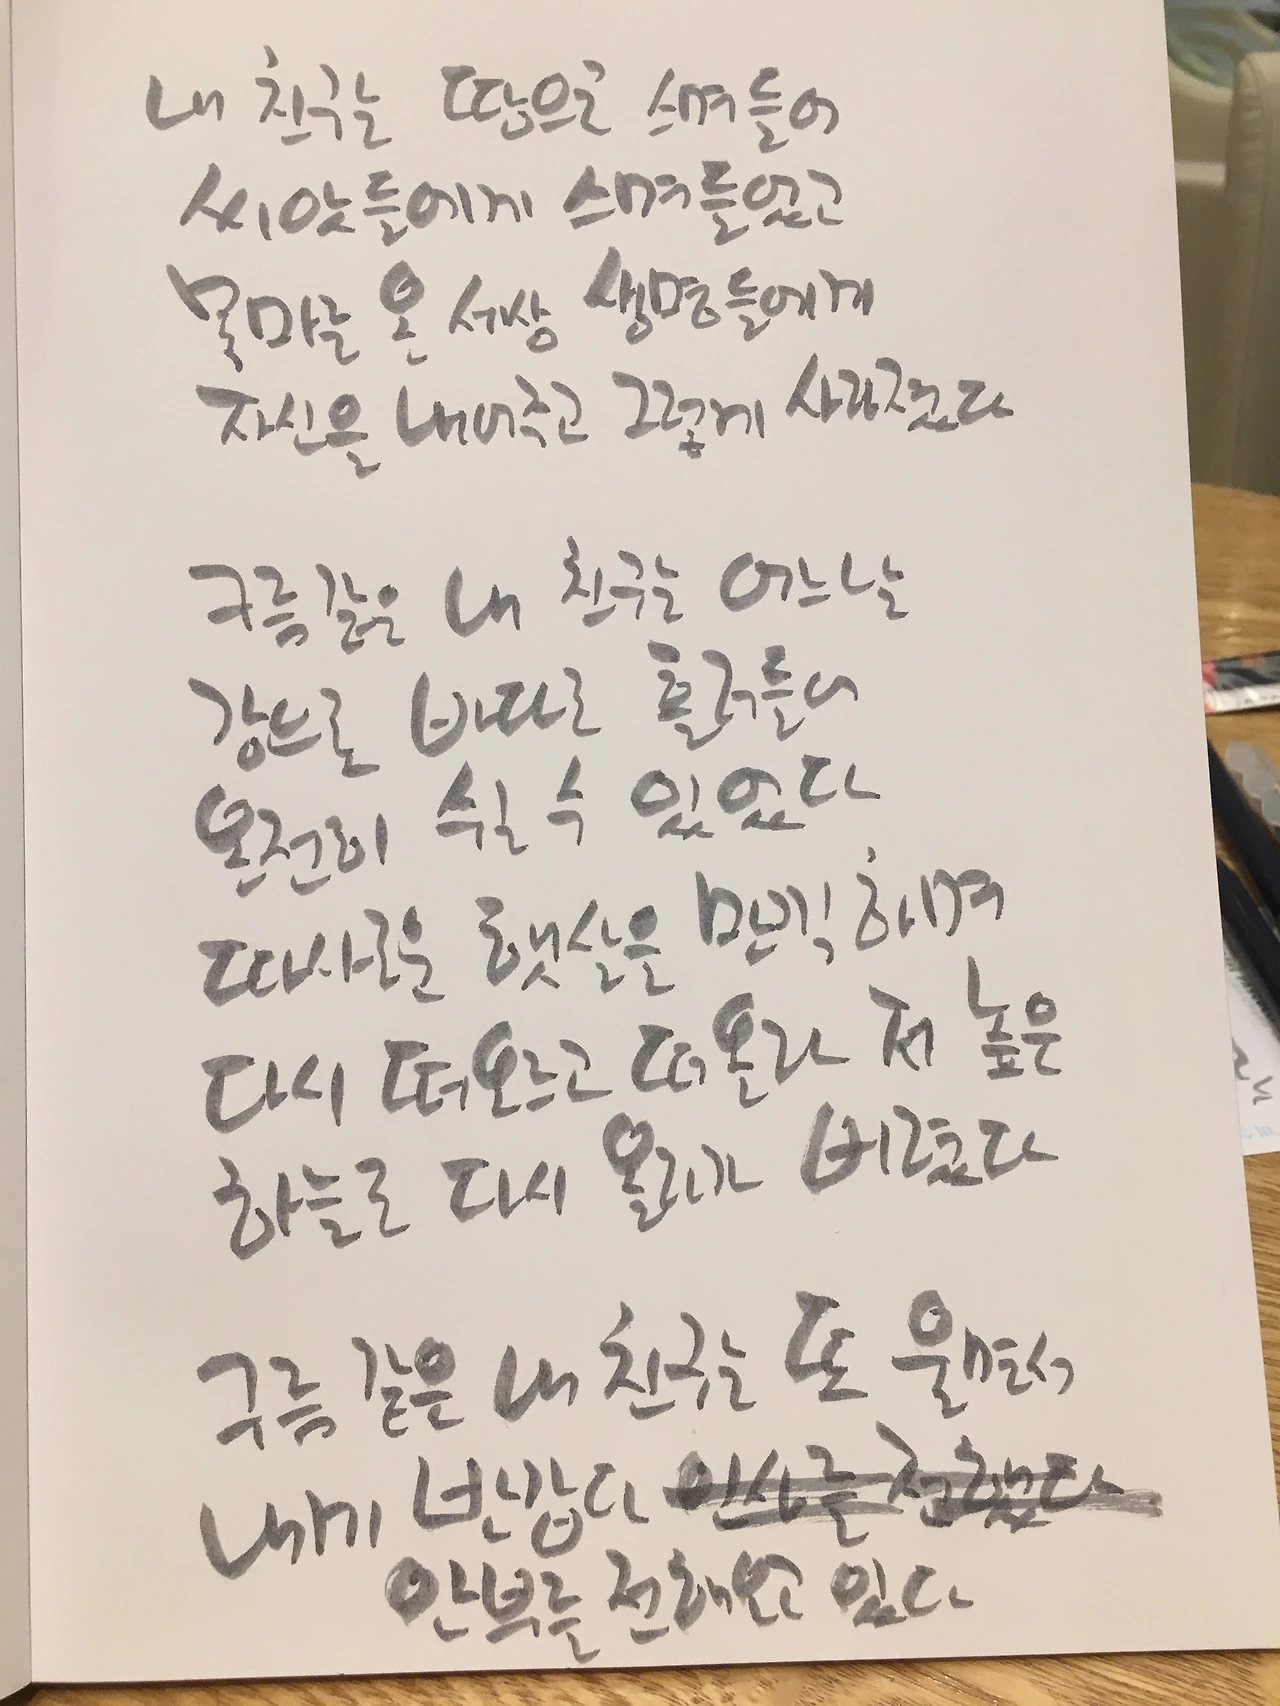 내 친구는 땅으로 스며들어
씨앗들에게 스며들었고
목마른 온 세상 생명들에게
자신을 내어주고 그렇게 사라졌다
구름같은 내 친구는 어느날
강으로 바다로 흘러들어
온전히 쉴 수 있었다
따사로운 햇살을 만끽하며
다시 떠오르고 떠올라 저 높은
하늘로 다시 올라가 버렸다
구름 같은 내 친구는 또 울면서
내게 반갑다 인사를 전했다
안부를 전해오고 있다